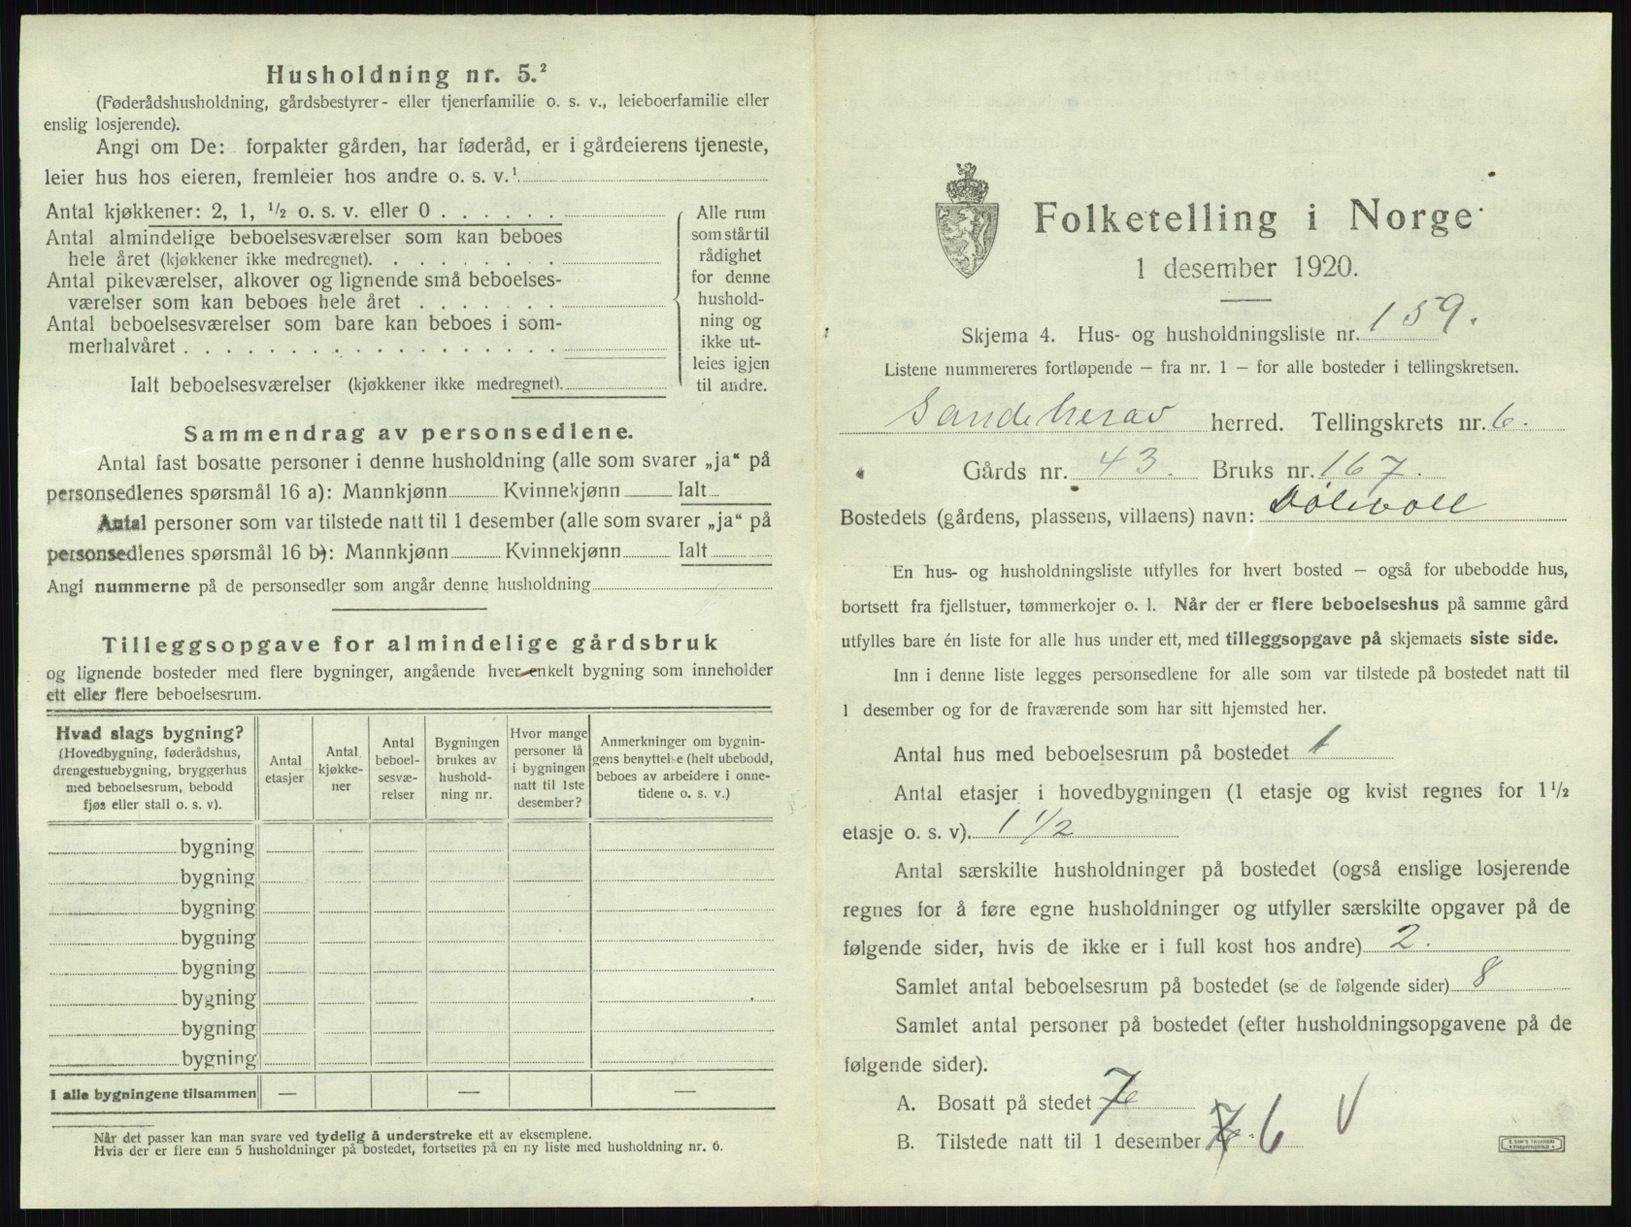 Husholdning nr. 5.²
(Føderådshusholdning, gårdsbestyrer- eller tjenerfamilie o. s. v., leieboerfamilie eller
enslig losjerende).
Angi om De: forpakter gården, har føderåd, er i gårdeierens tjeneste,
leier hus hos eieren, fremleier hos andre o. s. v.¹
Antal kjøkkener: 2, 1, ½ o. s. v. eller 0
Antal almindelige beboelsesværelser som kan beboes
hele året (kjøkkener ikke medregnet).
Antal pikeværelser, alkover og lignende små beboelses-
værelser som kan beboes hele året
Antal beboelsesværelser som bare kan beboes i som-
merhalvåret
Ialt beboelsesværelser (kjøkkener ikke medregnet).
Alle rum
som står til
rådighet
for denne
hushold-
ning og
ikke ut-
leies igjen
til andre.
Sammendrag av personsedlene.
Antal fast bosatte personer i denne husholdning (alle som svarer „ja“ på
personsedlenes spørsmål 16 a): Mannkjønn Kvinnekjønn Ialt
Antal personer som var tilstede natt til 1 desember (alle som svarer „ja“ på
personsedlenes spørsmål 16 b): Mannkjønn Kvinnekjønn Ialt
Angi nummerne på de personsedler som angår denne husholdning
Tilleggsopgave for almindelige gårdsbruk
og lignende bosteder med flere bygninger, angående hver enkelt bygning som inneholder
ett eller flere beboelsesrum.
Hvad slags bygning?
(Hovedbygning, føderådshus,
drengestuebygning, bryggerhus
med beboelsesrum, bebodd
fjøs eller stall o. s. v).
Antal
etasjer
Antal
kjøkke-
ner
Antal
beboel-
sesvæ-
relser
Bygningen
brukes av
hushold-
ning nr.
Hvor mange
personer lå
i bygningen
natt til 1ste
desember?
Anmerkninger om bygnin-
gens benyttelse (helt ubebodd,
beboes av arbeidere i onne-
tidene o. s. v.)
bygning
bygning
bygning
bygning
bygning
bygning
bygning
bygning
I alle bygningene tilsammen — — —
Når det passer kan man svare ved tydelig å understreke ett av eksemplene.
Hvis der er flere enn 5 husholdninger på bostedet, fortsettes på en ny liste med husholdning nr. 6.
Folketelling i Norge
1 desember 1920.
Skjema 4. Hus- og husholdningsliste nr. 159.
Listene nummereres fortløpende — fra nr. 1 — for alle bosteder i tellingskretsen.
Sandeherav herred. Tellingskrets nr. 6.
Gårds nr. 43. Bruks nr. 167.
Bostedets (gårdens, plassens, villaens) navn: Dölevoll
En hus- og husholdningsliste utfylles for hvert bosted — også for ubebodde hus,
bortsett fra fjellstuer, tømmerkojer o. l. Når der er flere beboelseshus på samme gård
utfylles bare én liste for alle hus under ett, med tilleggsopgave på skjemaets siste side.
Inn i denne liste legges personsedlene for alle som var tilstede på bostedet natt til
1 desember og for de fraværende som har sitt hjemsted her.
Antal hus med beboelsesrum på bostedet 1
Antal etasjer i hovedbygningen (1 etasje og kvist regnes for 1½
etasje o. s. v). 1 1/2
Antal særskilte husholdninger på bostedet (også enslige losjerende
regnes for å føre egne husholdninger og utfyller særskilte opgaver på de
følgende sider, hvis de ikke er i full kost hos andre) 2.
Samlet antal beboelsesrum på bostedet (se de følgende sider) 8
Samlet antal personer på bostedet (efter husholdningsopgavene på de
følgende sider).
A. Bosatt på stedet 7
B. Tilstede natt til 1 desember 7. 6 V